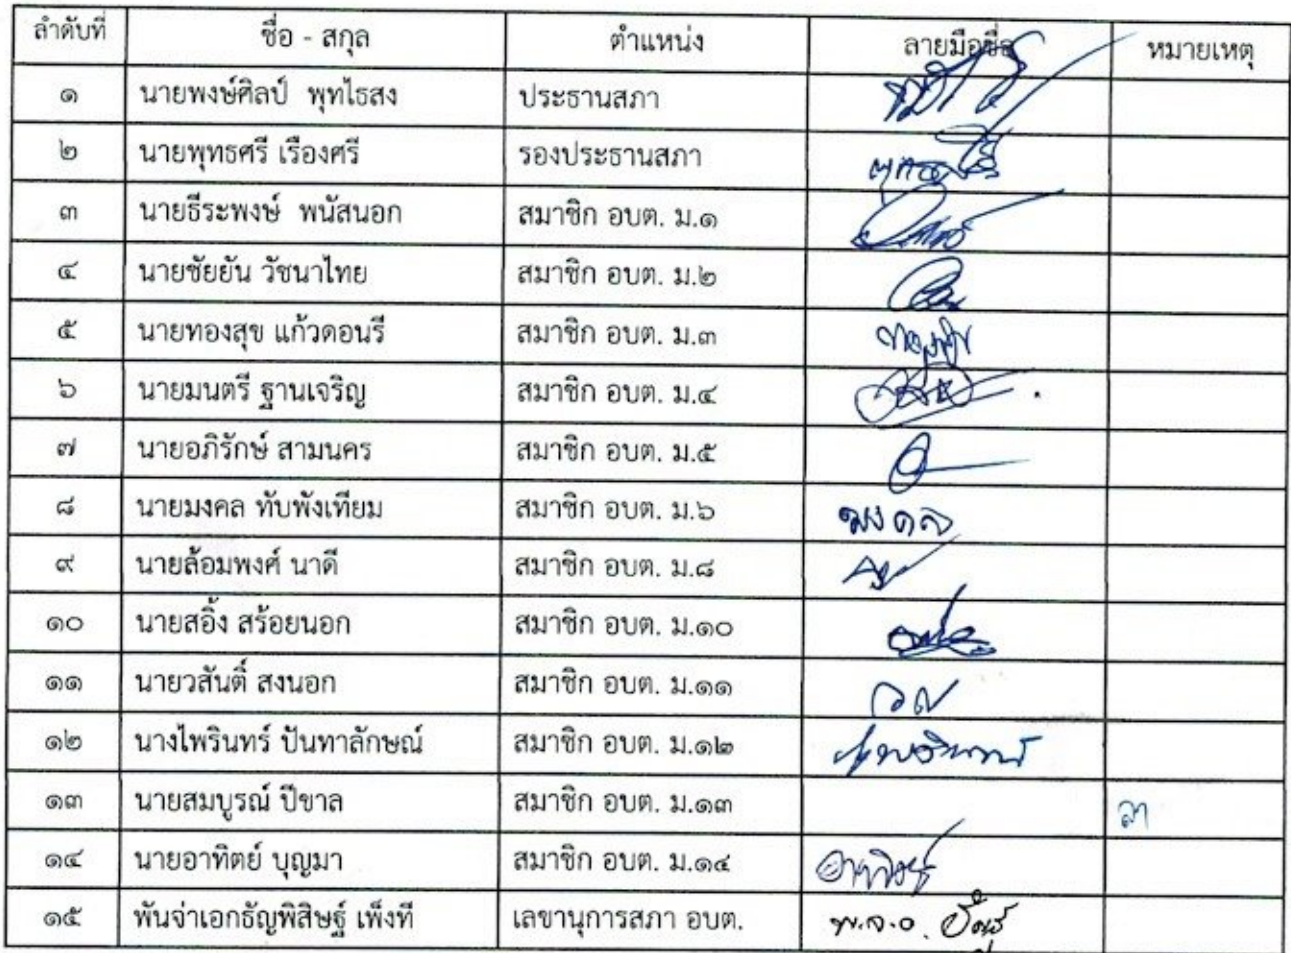 ลำดับที่ ชื่อ - สกุล ตำแหน่ง ลายมือชื่อ หมายเหตุ
๑ นายพงษ์ศิลป์ พุทไธสง ประธานสภา
๒ นายพุทธศรี เรืองศรี รองประธานสภา
๓ นายธีระพงษ์ พนัสนอก สมาชิก อบต. ม.๑
๔ นายชัยยัน วัชนาไทย สมาชิก อบต. ม.๒
๕ นายทองสุข แก้วดอนรี สมาชิก อบต. ม.๓ ทองสุข
๖ นายมนตรี ฐานเจริญ สมาชิก อบต. ม.๔
๗ นายอภิรักษ์ สามนคร สมาชิก อบต. ม.๕
๘ นายมงคล ทับพังเทียม สมาชิก อบต. ม.๖ มงคล
๙ นายล้อมพงศ์ นาดี สมาชิก อบต. ม.๘
๑๐ นายสอิ้ง สร้อยนอก สมาชิก อบต. ม.๑๐
๑๑ นายวสันติ์ สงนอก สมาชิก อบต. ม.๑๑
๑๒ นางไพรินทร์ ปันทาลักษณ์ สมาชิก อบต. ม.๑๒
๑๓ นายสมบูรณ์ ปีขาล สมาชิก อบต. ม.๑๓ ลา
๑๔ นายอาทิตย์ บุญมา สมาชิก อบต. ม.๑๔ อาทิตย์
๑๕ พันจ่าเอกธัญพิสิษฐ์ เพ็งที เลขานุการสภา อบต. พ.จ.อ.